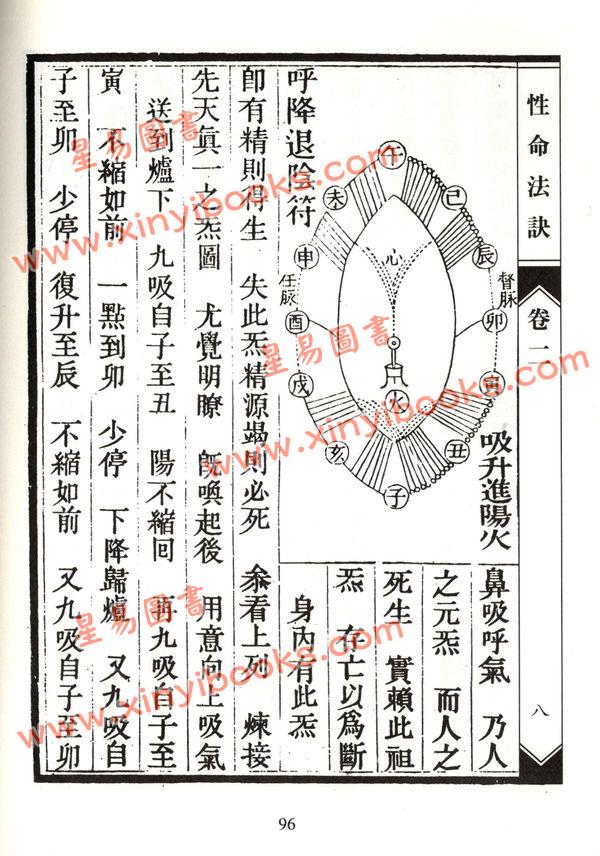 性命法訣
卷二
八
吸升進陽火
督脈
任脈
午
巳
辰
卯
寅
丑
子
亥
戌
酉
申
未
心
火
呼降退陰符
鼻吸呼氣 乃人
之元炁 而人之
死生 實賴此祖
炁 存亡以爲斷
身內有此炁
卽有精則得生 失此炁精源竭則必死 叅看上列 煉接
先天眞一之炁圖 尤覺明瞭 旣喚起後 用意向上吸氣
送到爐下 九吸自子至丑 陽不縮回 再九吸自子至
寅 不縮如前 一點到卯 少停 下降歸爐 又九吸自
子至卯 少停 復升至辰 不縮如前 又九吸自子至卯
96
星易圖書
www.xinyibooks.com
星易圖書
www.xinyibooks.com
星易圖書
www.xinyibooks.com